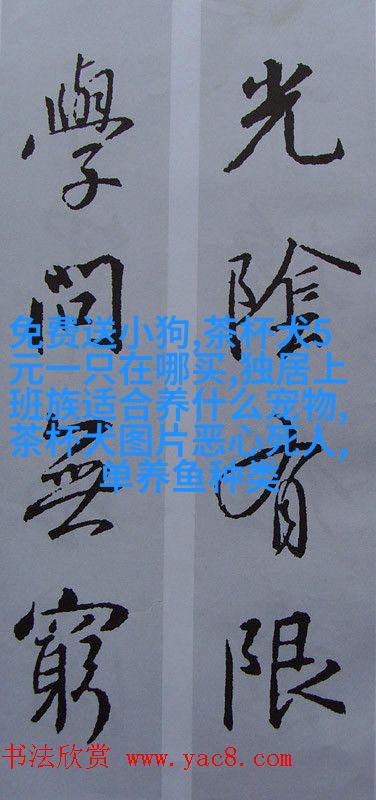 光陰有限
學問無窮
免费送小狗,茶杯犬5
元一只在哪买,独居上
班族适合养什么宠物,
茶杯犬图片恶心死人,
单养鱼种类
书法欣赏 www.yac8.com